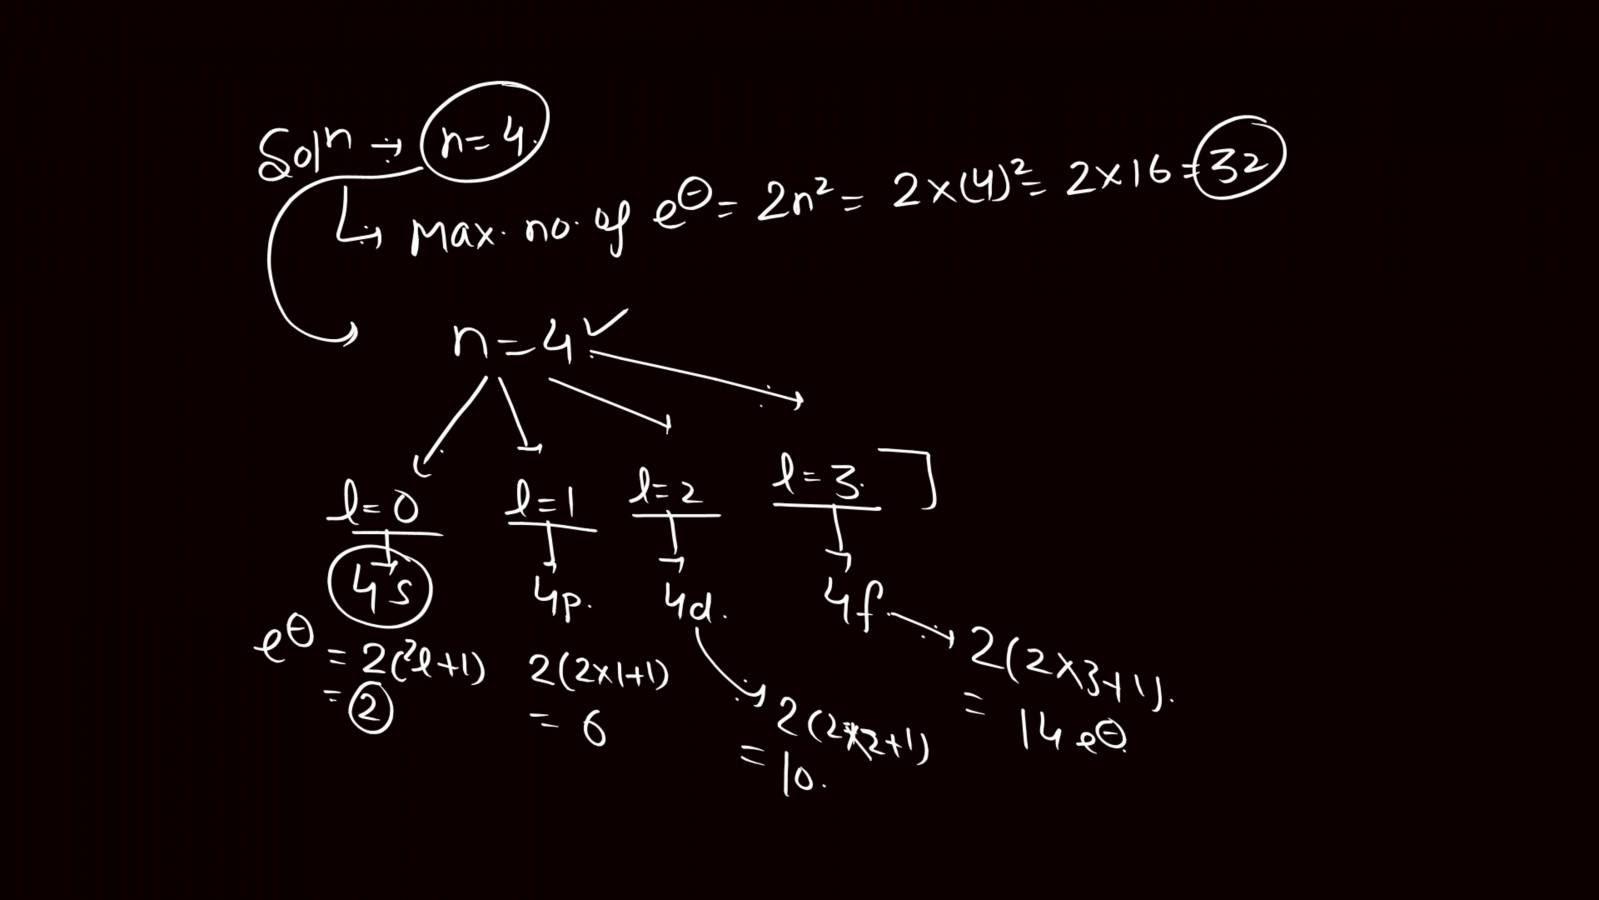 Solⁿ → n=4.
↳ Max. no. of e⊖ = 2n² = 2×(4)² = 2×16 = 32
n=4 ✓
l=0 l=1 l=2 l=3.
4s 4p. 4d. 4f → 2(2×3+1).
e⊖ = 2(2l+1) 2(2×1+1) = 14 e⊖
= 2 = 6 2(2×2+1)
= 10.